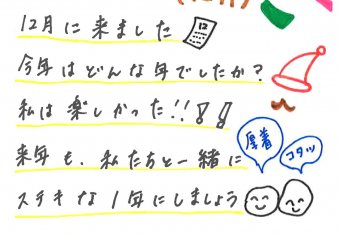 12月に来ました
12
今年はどんな年でしたか?
私は楽しかった!!!!
来年も、私たちと一緒に
厚着
コタツ
ステキな1年にしましょう